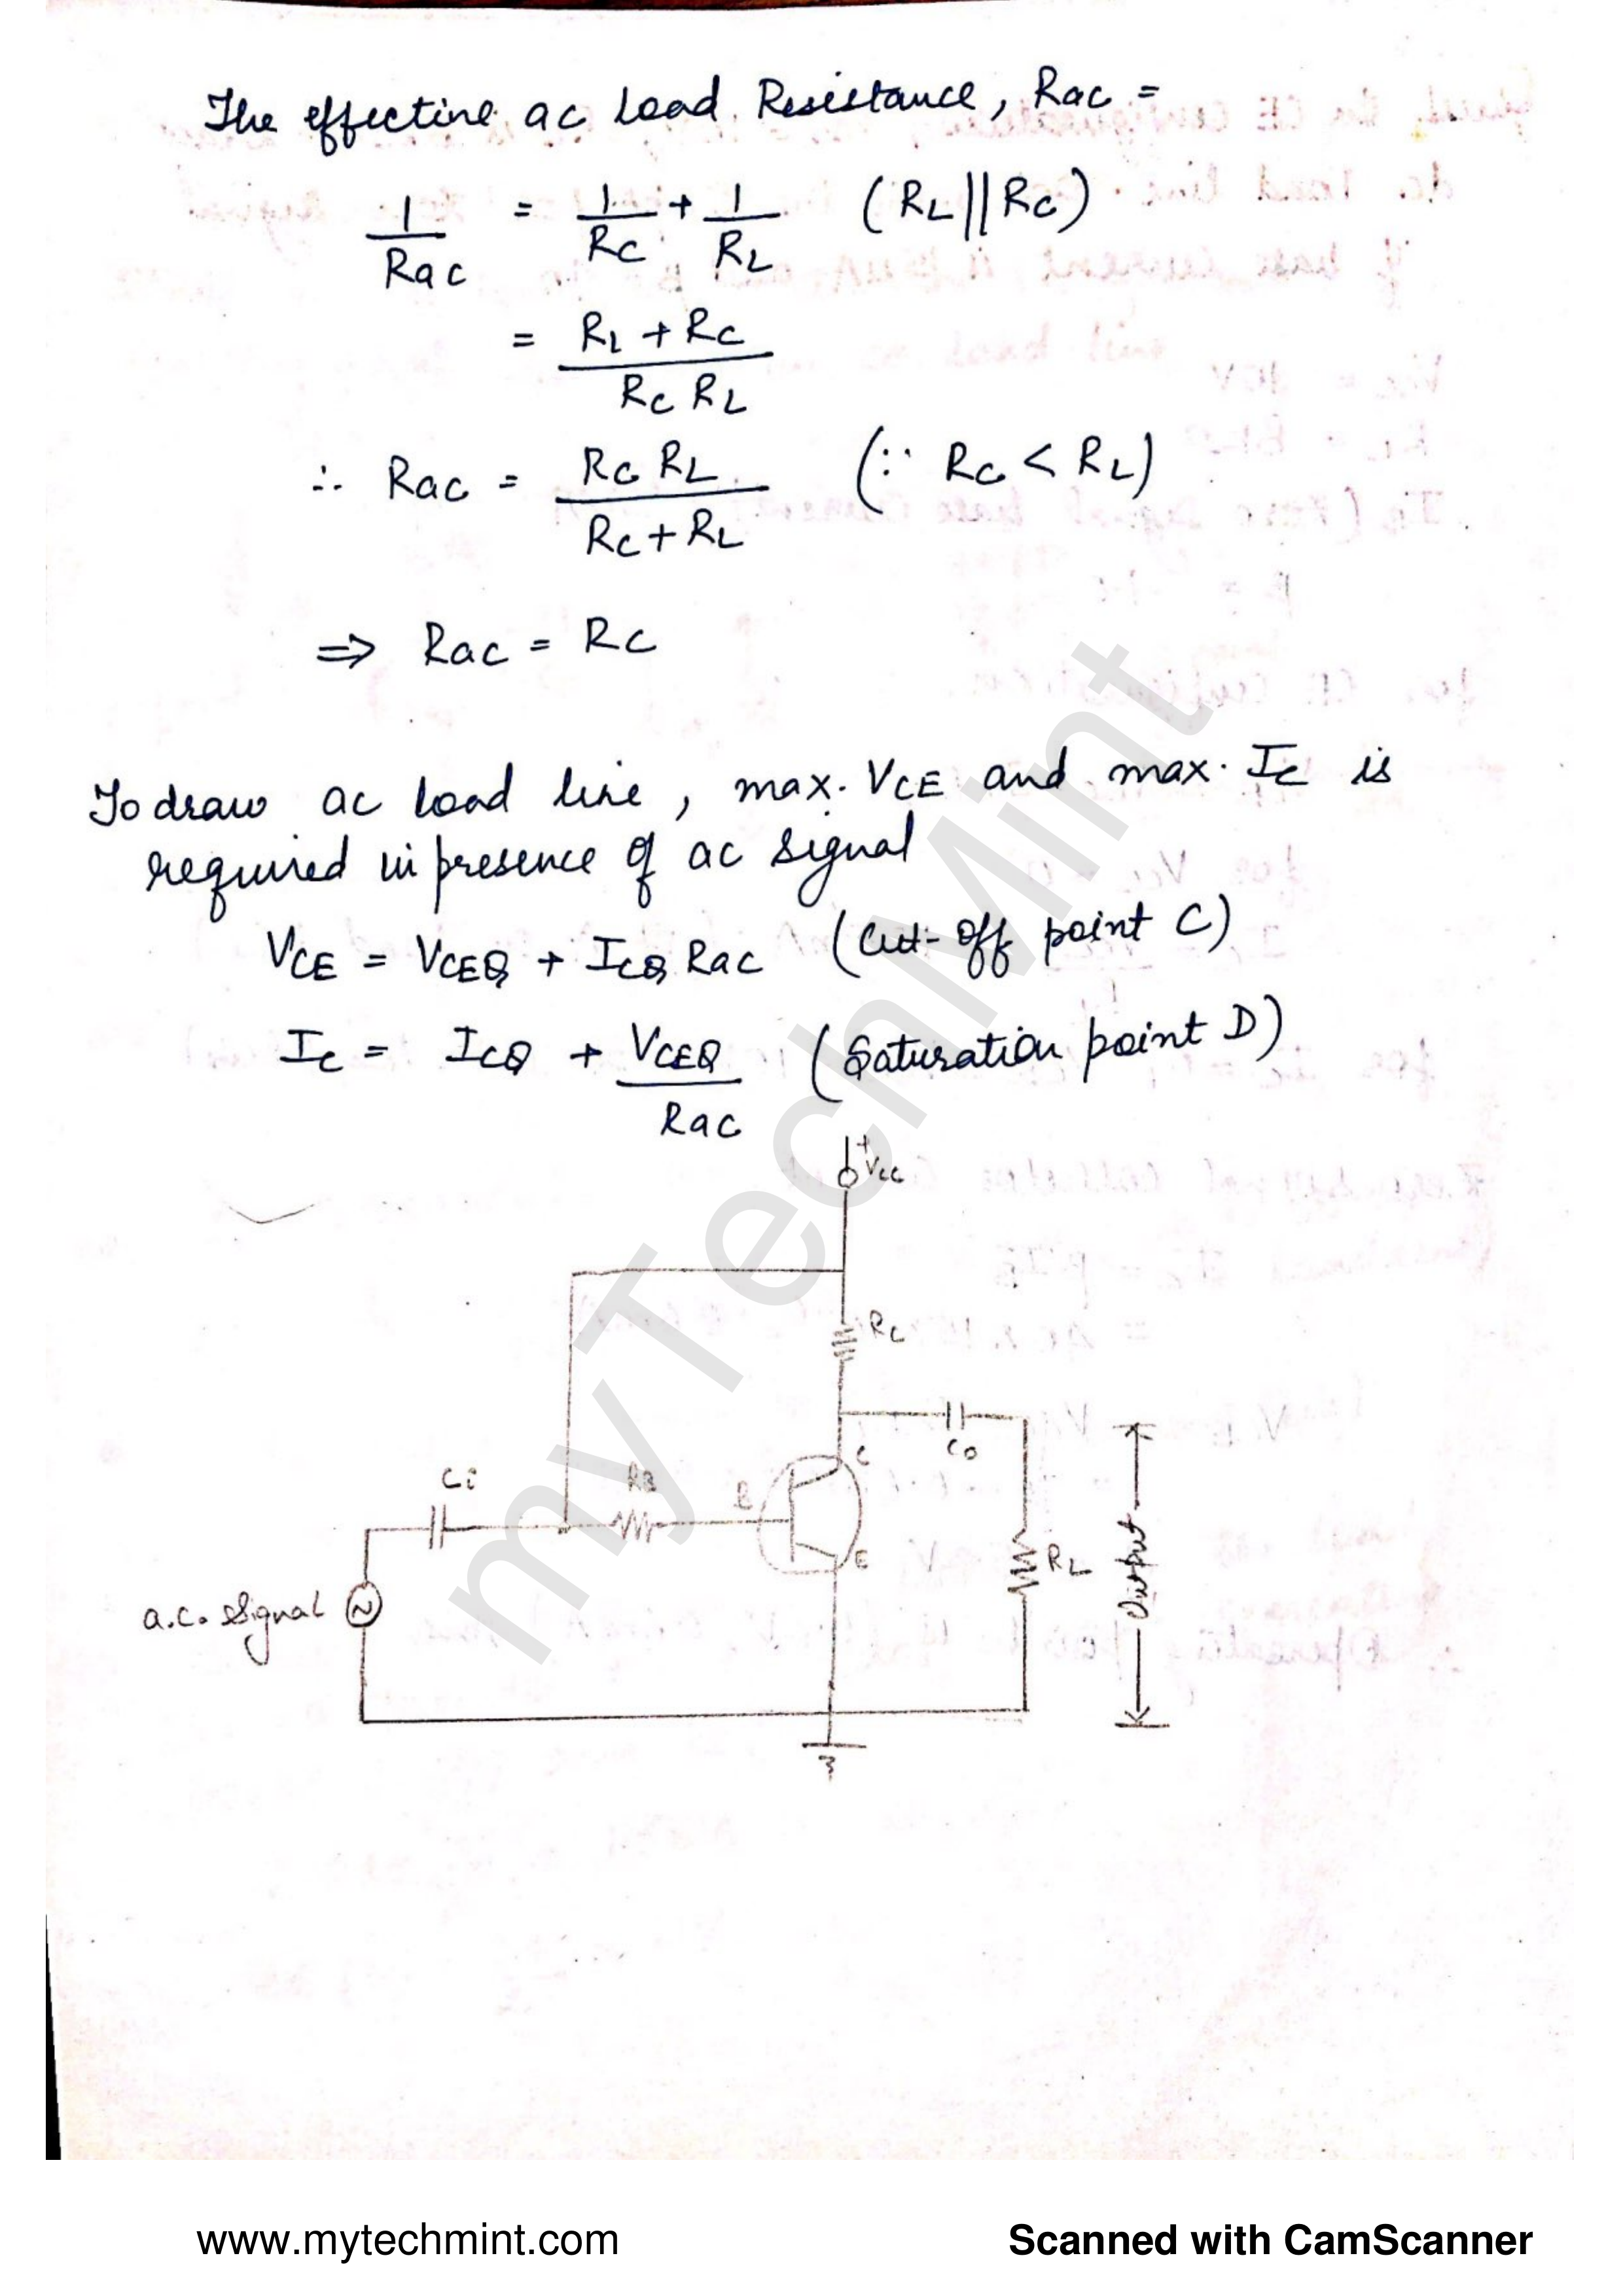 The effective ac load Resistance, Rac =
1/Rac = 1/RC + 1/RL (RL||RC)
= RL + RC / RC RL
∴ Rac = RC RL / RC + RL (∵ RC < RL)
⇒ Rac = RC
To draw ac load line, max. VCE and max. IC is
required in presence of ac signal
VCE = VCEQ + ICQ Rac (Cut-off point C)
IC = ICQ + VCEQ / Rac (Saturation point D)
+
VCC
RC
C
Co
Ci
RB
B
E
RL
Output
a.c. signal
myTechMint
www.mytechmint.com
Scanned with CamScanner